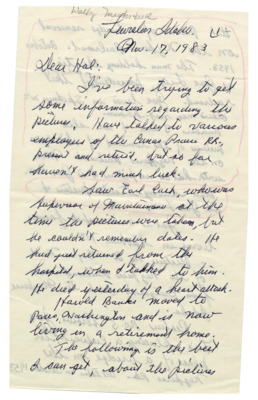 Lewiston Idaho.
Nov. 17, 1983
Dear Hal:
I've been trying to get
some information regarding the
pictures. Have talked to various
employees of the Camas Prairie RR.
present and retired, but so far
haven't had much luck.
Saw Earl Lusk, who was
supervisor of Maintenance at the
time the pictures were taken, but
he couldn't remember dates. He
had just returned from the
hospital, when I talked to him.
He died yesterday of a heart attack.
Harold Banks moved to
Washington and is now
living in a retirement home.
The following is the best
I can get, about the pictures